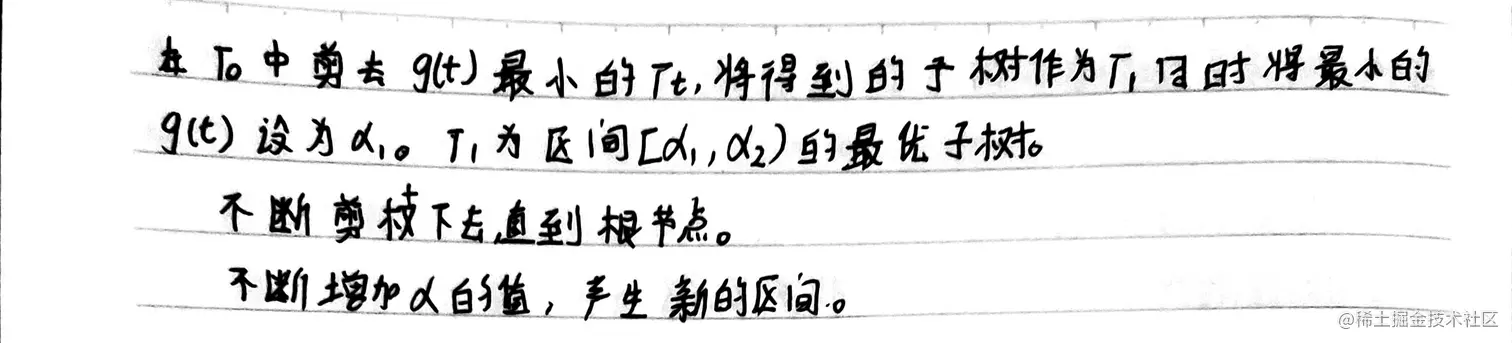 在 T₀ 中剪去 g(t) 最小的 Tt, 将得到的子树作为 T₁ 同时将最小的
g(t) 设为 α₁。T₁ 为区间 [α₁, α₂) 的最优子树。
不断剪枝下去,直到根节点。
不断增加 α 的值, 产生新的区间。
@稀土掘金技术社区